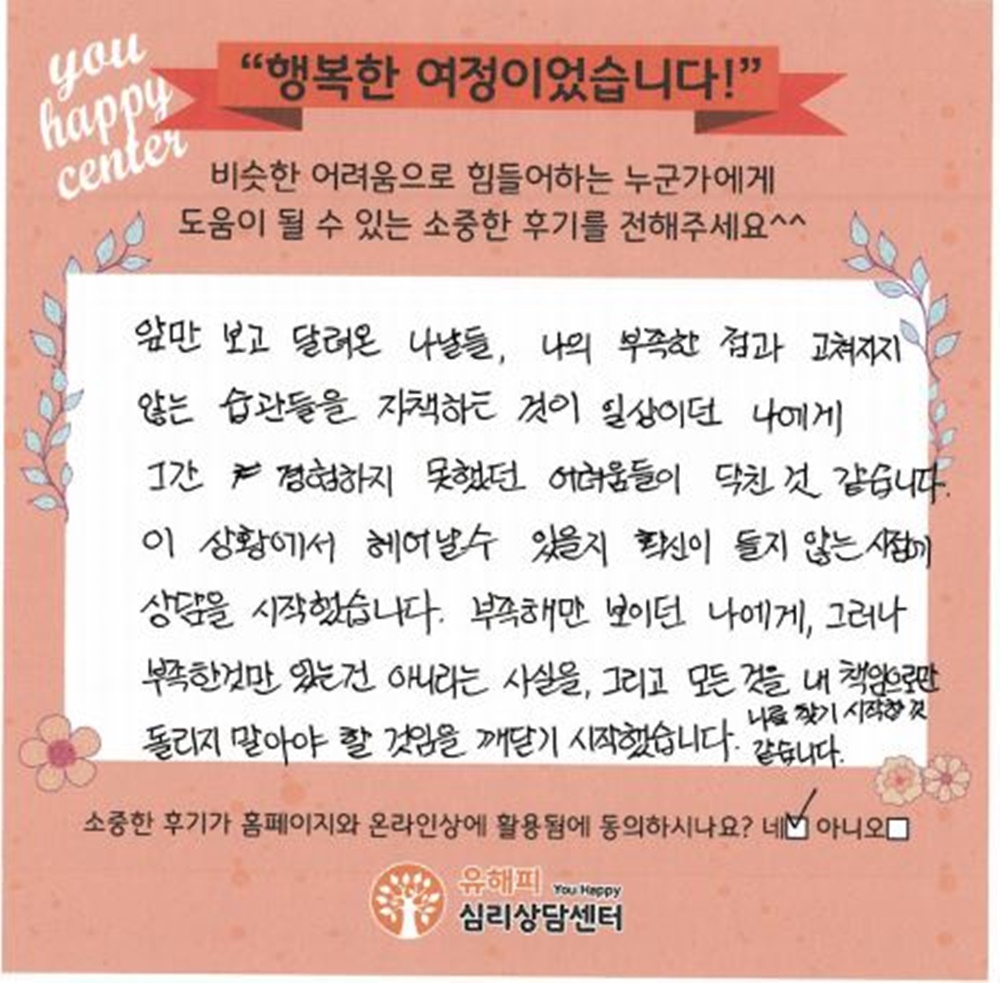 you
happy
center
“행복한 여정이었습니다!”
비슷한 어려움으로 힘들어하는 누군가에게
도움이 될 수 있는 소중한 후기를 전해주세요^^
앞만 보고 달려온 나날들, 나의 부족한 점과 고쳐지지
않는 습관들을 자책하는 것이 일상이던 나에게
그간 경험하지 못했던 어려움들이 닥친 것 같습니다.
이 상황에서 헤어날수 있을지 확신이 들지 않는 시점에
상담을 시작했습니다. 부족해만 보이던 나에게, 그러나
부족한것만 있는건 아니라는 사실을, 그리고 모든 것을 내 책임으로만
돌리지 말아야 할 것임을 깨닫기 시작했습니다.
나를 찾기 시작한 것
같습니다.
소중한 후기가 홈페이지와 온라인상에 활용됨에 동의하시나요? 네☑ 아니오☐
유해피 You Happy
심리상담센터